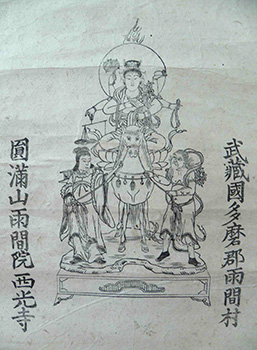 武藏國多磨郡雨間村
圓滿山雨間院西光寺